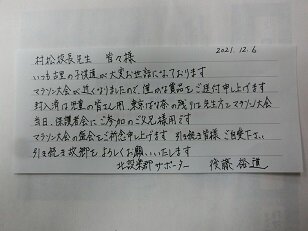 2021.12.6
村松校長先生 皆々様
いつも古里の子供達が大変お世話になっております
マラソン大会が近くなりましたので、僅かな賞品をご送付申し上げます
封入済は児童の皆さん用、東京ばな奈の残りは先生方とマラソン大会
当日、保護者会にご参加のご父兄様用です
マラソン大会の盛会をご祈念申し上げます 引き続き皆様ご自愛下さい
引き続き故郷をよろしくお願いいたします
北設楽郡サポーター 後藤裕道